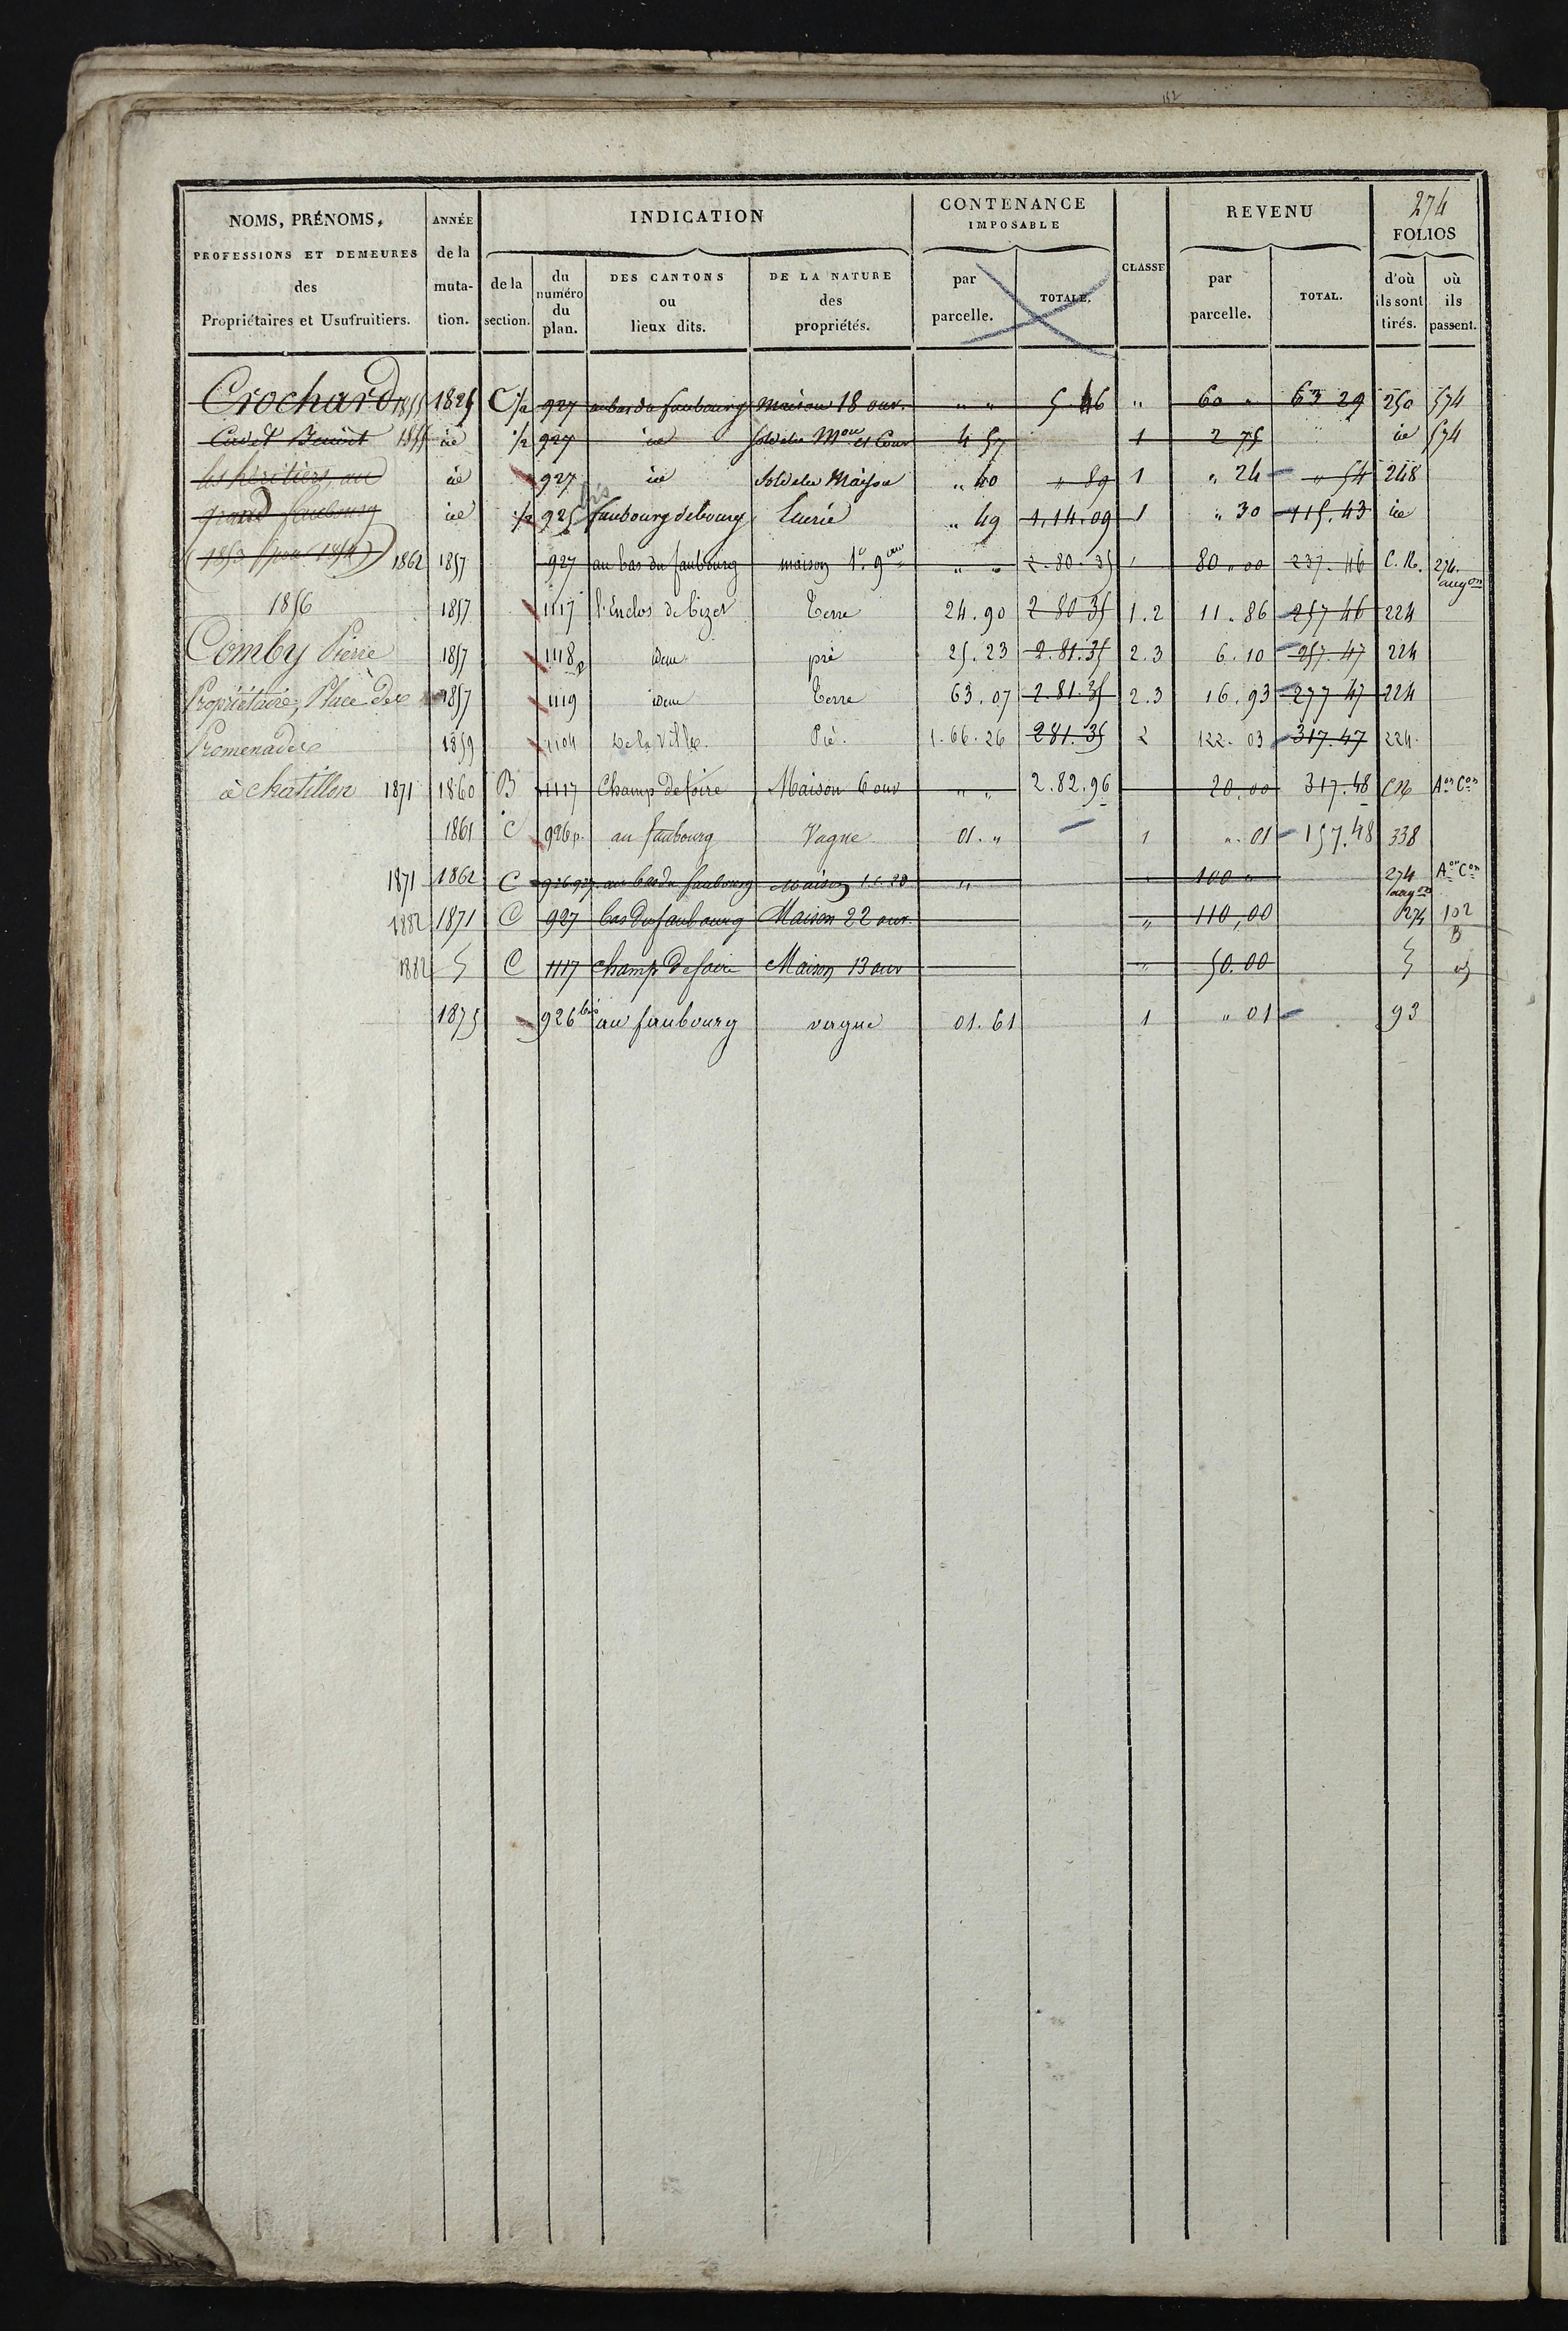 152
274
NOMS, PRÉNOMS, PROFESSIONS ET DEMEURES des Propriétaires et Usufruitiers.
ANNÉE de la muta- tion.
INDICATION
de la section.
du numéro du plan.
DES CANTONS ou lieux dits.
DE LA NATURE des propriétés.
CONTENANCE IMPOSABLE
par parcelle.
TOTALE.
CLASSE
REVENU
par parcelle.
TOTAL.
FOLIOS
d'où ils sont tirés.
où ils passent.
Crochard 1855 1825 C 1/2 927 au bas du faubourg Maison 18 ouv. " " 5 46 " 60 " 63 29 250 574
Cadet Benoit 1855 id 1/2 927 id Sol de la Mon et Cour 4 57 1 2 75 id 574
les héritiers, au id 927 id Sol de la Maison " 40 " 89 1 " 24 " 54 248
grand faubourg id 1/2 925 bis faubourg de bourg Ecurie " 49 1.14.09 1 " 30 115.43 id
(1853 (pour 1854) 1862 1857 927 au bas du faubourg maison 1e. 9 ouv " " 2.80.35 " 80.00 237.46 C.N. 274. augon
1856 1857 1117 l'Enclos de Bizet Terre 24.90 2 80 35 1.2 11.86 257 46 224
Comby Pierre 1857 1118 p idem pré 25.23 2.81.35 2.3 6.10 257.47 224
Propriétaire, Place des 1857 1119 idem Terre 63.07 2.81.35 2.3 16.93 277 47 224
Promenades 1859 1104 De la Ville. Pré. 1.66.26 281.35 2 122.03 317.47 224.
à Chatillon 1871 1860 B 1117 Champ de foire Maison 6 ouv " " 2.82.96 20.00 317.48 CN Aon Con
1861 C 926 p. au faubourg Vague 01. " 1 ".01 157.48 338
1871 1862 C 926.927. au bas du faubourg Maison 20 " " 100 " 274 augon Aon Con
1882 1871 C 927 bas du faubourg Maison 22 ouv. " 110,00 274 102
1882 C 1117 champ de foire Maison 13 ouv " 50.00 B
1875 926 bis au faubourg vague 01.61 1 " 01 93